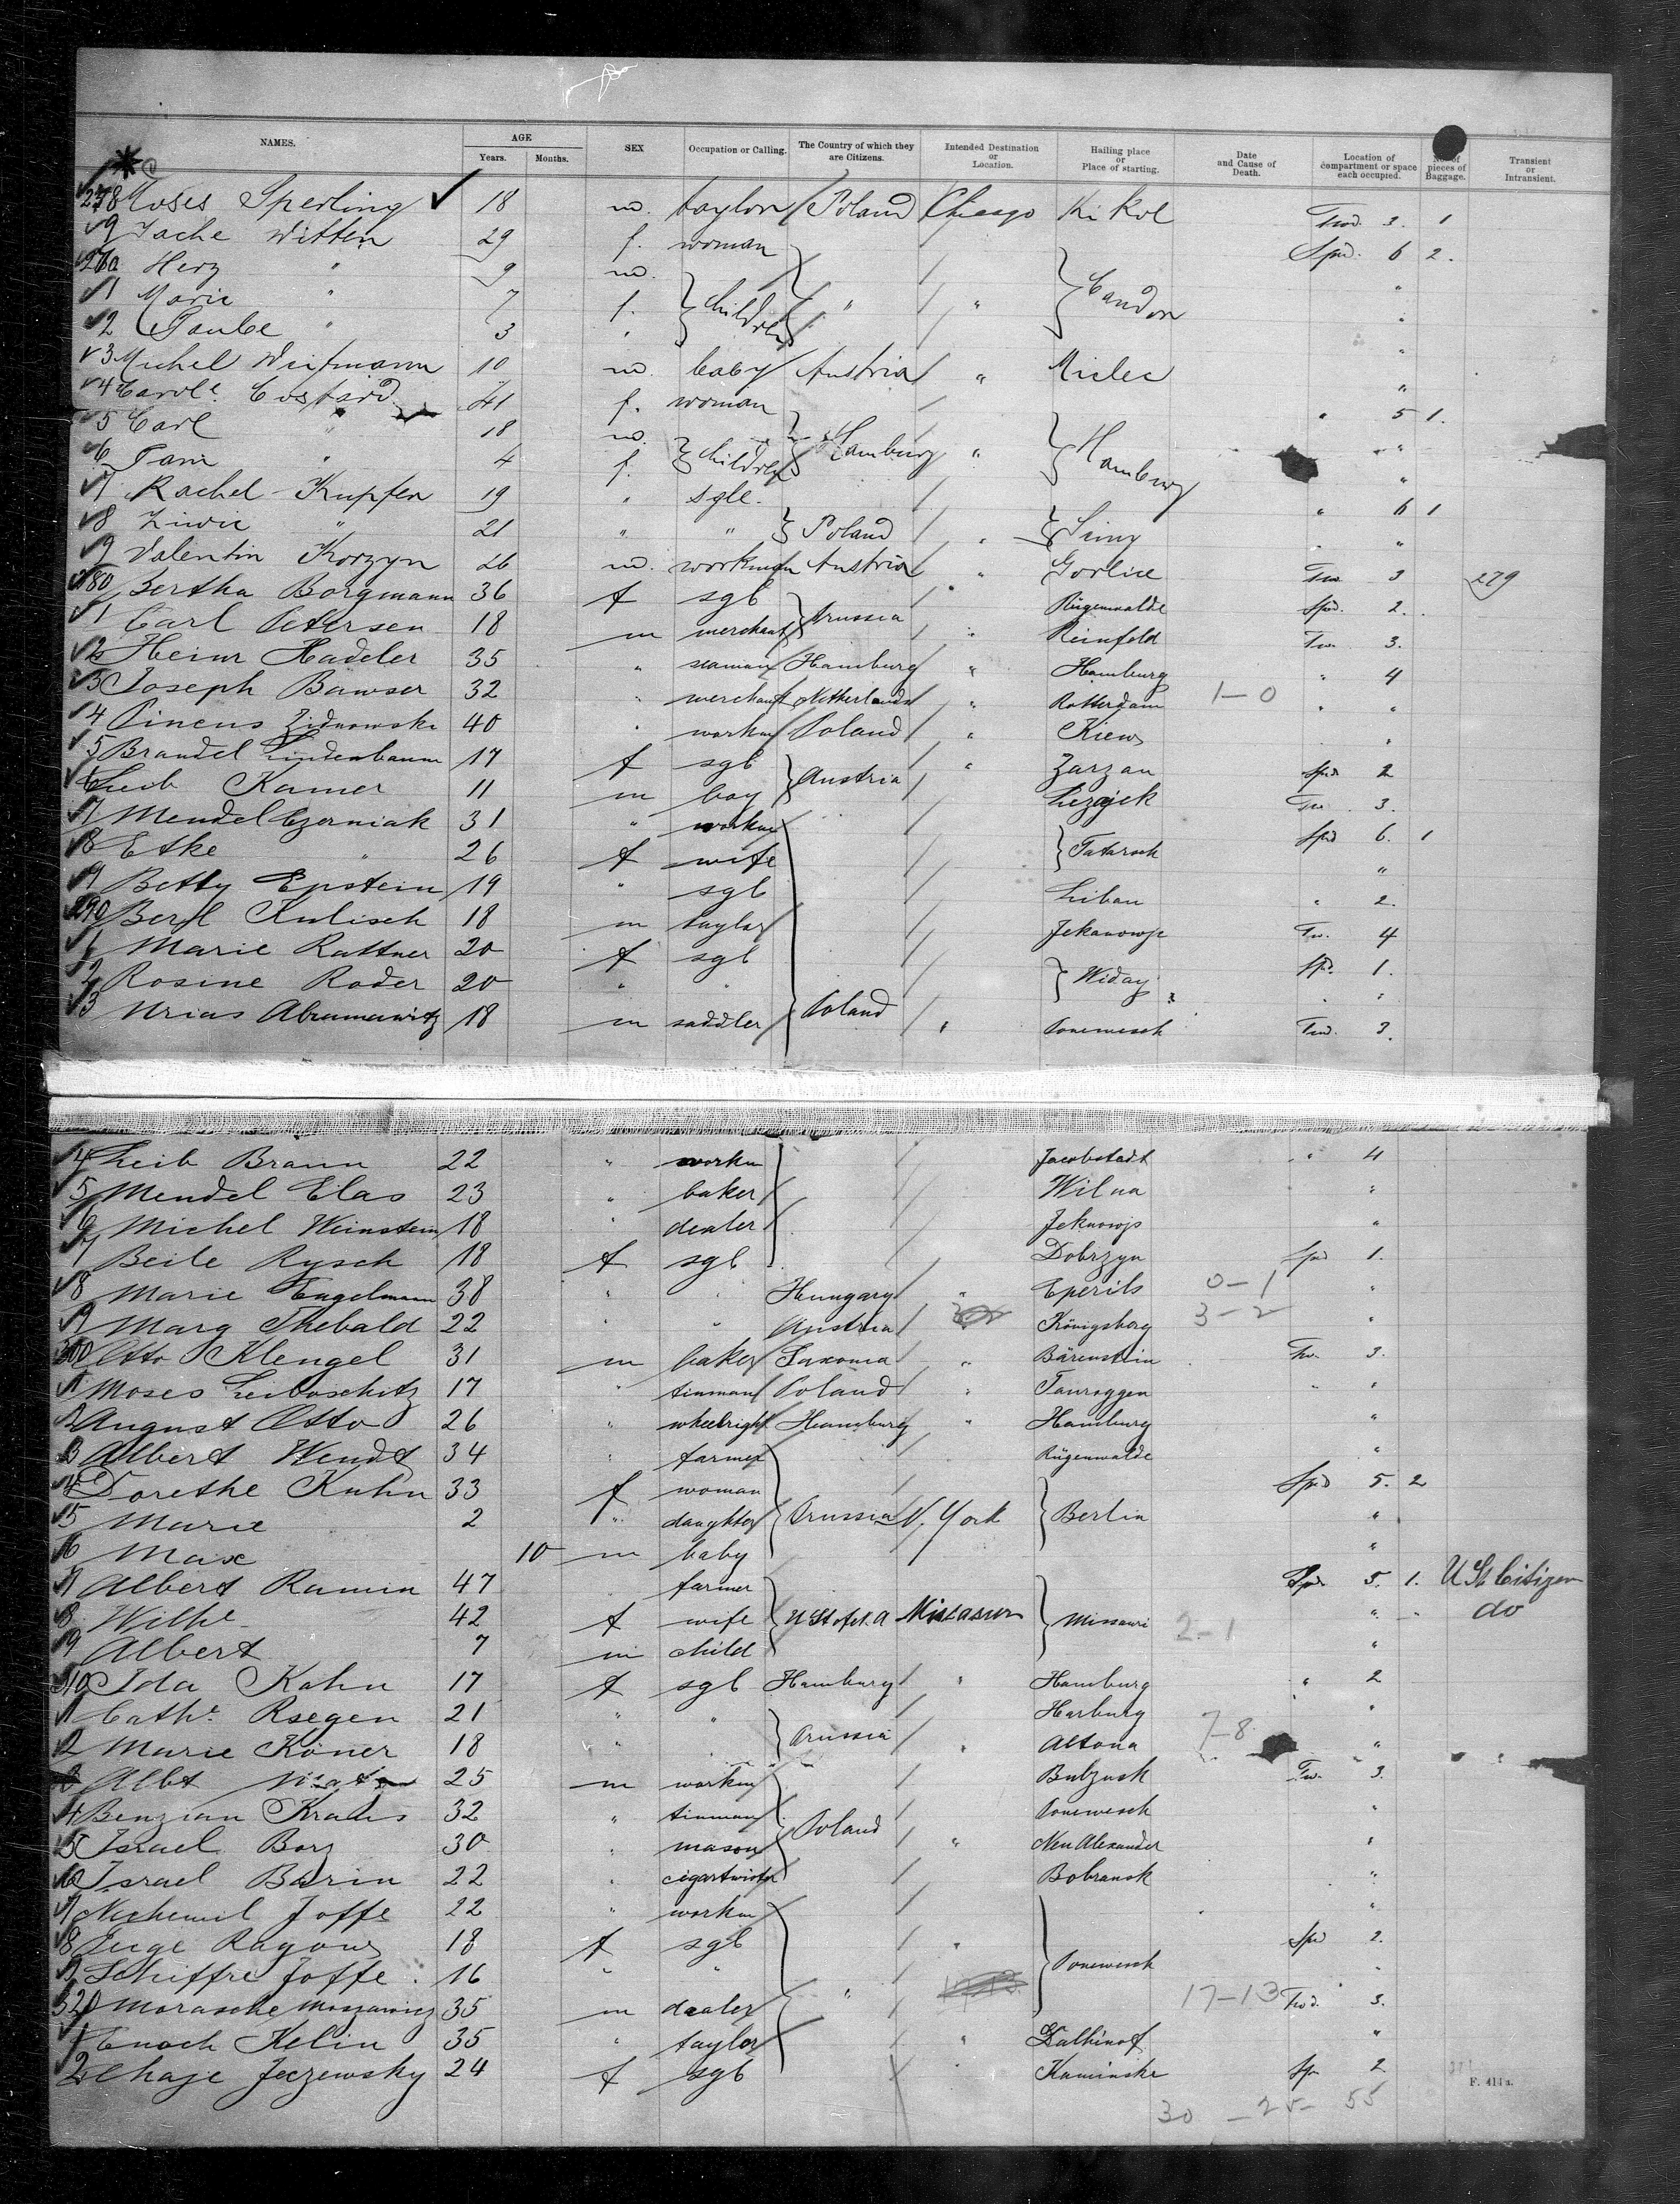 NAMES. AGE SEX Occupation or Calling. The Country of which they are Citizens. Intended Destination or Location. Hailing place or Place of starting. Date and Cause of Death. Location of compartment or space each occupied. No. of pieces of Baggage. Transient or Intransient.
Years. Months.
Moses Sperling 18 m. taylor Poland Chicago Kikol Twd. 3. 1
9 Witten 29 f. woman Spd. 6 2.
Herz " 9 m.
1 Marie " 7 f. children " " 
2 Taube " 3 "
3 Michel 10 m. baby Austria " Mielec "
4 41 f. woman " 5 1.
5 Carl " 18 m. children Hamburg " Hamburg "
6 " 4 f. "
7 Rachel Kupfer 19 " sgle. " 6 1
8 " 21 " " Poland "
9 Valentin Korzyn 26 m. workman Austria " Gorlice Tw. 3 279
280 Bertha Borgmann 36 f sgl Prussia Rügenwalde Spd. 2.
1 Carl Petersen 18 m merchant " Reinfeld Tw. 3.
2 Heinr Hadeler 35 " seaman Hamburg " Hamburg " 4
3 Joseph Bawser 32 " merchant Netherlands " Rotterdam 1-0 " "
4 Pincus 40 " workm Poland " Kiew "
5 Brandel Lindenbaum 17 f sgl Austria " Zarzan Spd 2
6 Leib Kamer 11 m boy Lezajek Tw. 3.
7 Mendel Czerniak 31 " workm Spd 6. 1
8 Etke " 26 f wife "
9 Betty Epstein 19 " sgl Libau " 2.
290 Berl Kulisch 18 m taylor Tw. 4
1 Marie Rattner 20 f sgl Widay Spd. 1.
2 Rosine Roder 20 " " " "
3 Urias Abramowitz 18 m saddler Poland " Ponewesch Twd. 3.
4 Leib Braun 22 " workm Jacobstadt " 4
5 Mendel Elas 23 " baker Wilna "
6 Michel Weinstein 18 " dealer "
7 Beile Rysch 18 f sgl Dobrzyn Spd 1.
8 Marie Engelmann 38 " " Hungary " Eperils 0-1 "
9 Marg Thebald 22 " " Austria Königsberg 3-2 "
300 Otto Klengel 31 m baker Saxonia " Bärenstein Tw. 3.
1 Moses Leiboschitz 17 " tinman Poland " Tauroggen " "
2 August Otto 26 " wheelright Hamburg " Hamburg "
3 Albert Wendt 34 " farmer Rügenwalde "
4 Dorethe Kuhn 33 f woman Spd 5. 2
5 Marie 2 " daughter Prussia N. York Berlin "
6 Max 10 m baby "
7 Albert Ramin 47 farmer Spd. 5. 1. U St Citizen
8 Wilhe 42 f wife Missouri 2-1 " " do
9 Albert 7 m child "
310 Ida Kohn 17 f sgl Hamburg " Hamburg " 2
1 Cathe. Rsegen 21 " " Harburg "
2 Marie Köner 18 " " Prussia " Altona 7-8 "
Albt 25 m workm Tw. 3.
4 Benzian Krades 32 " tinman Poland Ponewesch "
5 Israel Borz 30 " mason " Neu Alexander "
6 Israel Barin 22 " cigartwister Bobransk "
7 Joffe 22 " workm "
8 18 f sgl " Ponewesch Spd 2.
9 Schiffre Joffe 16 " " "
320 35 m dealer " 17-13 Twd. 3.
1 Enoch Kelin 35 " taylor " "
2 Chaje Jeczewsky 24 f sgl Kaminske Sp 2
F. 411a.
30 - 25 - 55